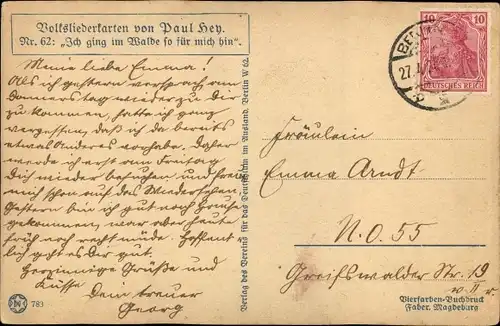 Volksliederkarten von Paul Hey.
Nr. 62: „Ich ging im Walde so für mich hin“.
Meine liebe Emma!
Als ich gestern versprach am
Donnerstag wieder zu Dir
zu kommen, hatte ich ganz
vergessen, daß ich da bereits
etwas Anderes vorhabe. Daher
werde ich erst am Freitag
Dich wieder besuchen und freue
mich schon auf das Wiedersehen.
Gestern bin ich gut nach Hause
gekommen, war aber heute
früh noch recht müde. Hoffent
lich geht es Dir gut.
Herzinnige Grüße und
Küsse
Dein treuer
Georg
783
Verlag des Vereins für das Deutschtum im Ausland, Berlin W 62.
10 10
DEUTSCHES REICH
BERLIN
27.
Fräulein
Emma Arndt
N.O. 55
Greifswalder Str. 19
v. II r.
Vierfarben-Buchdruck
Faber, Magdeburg